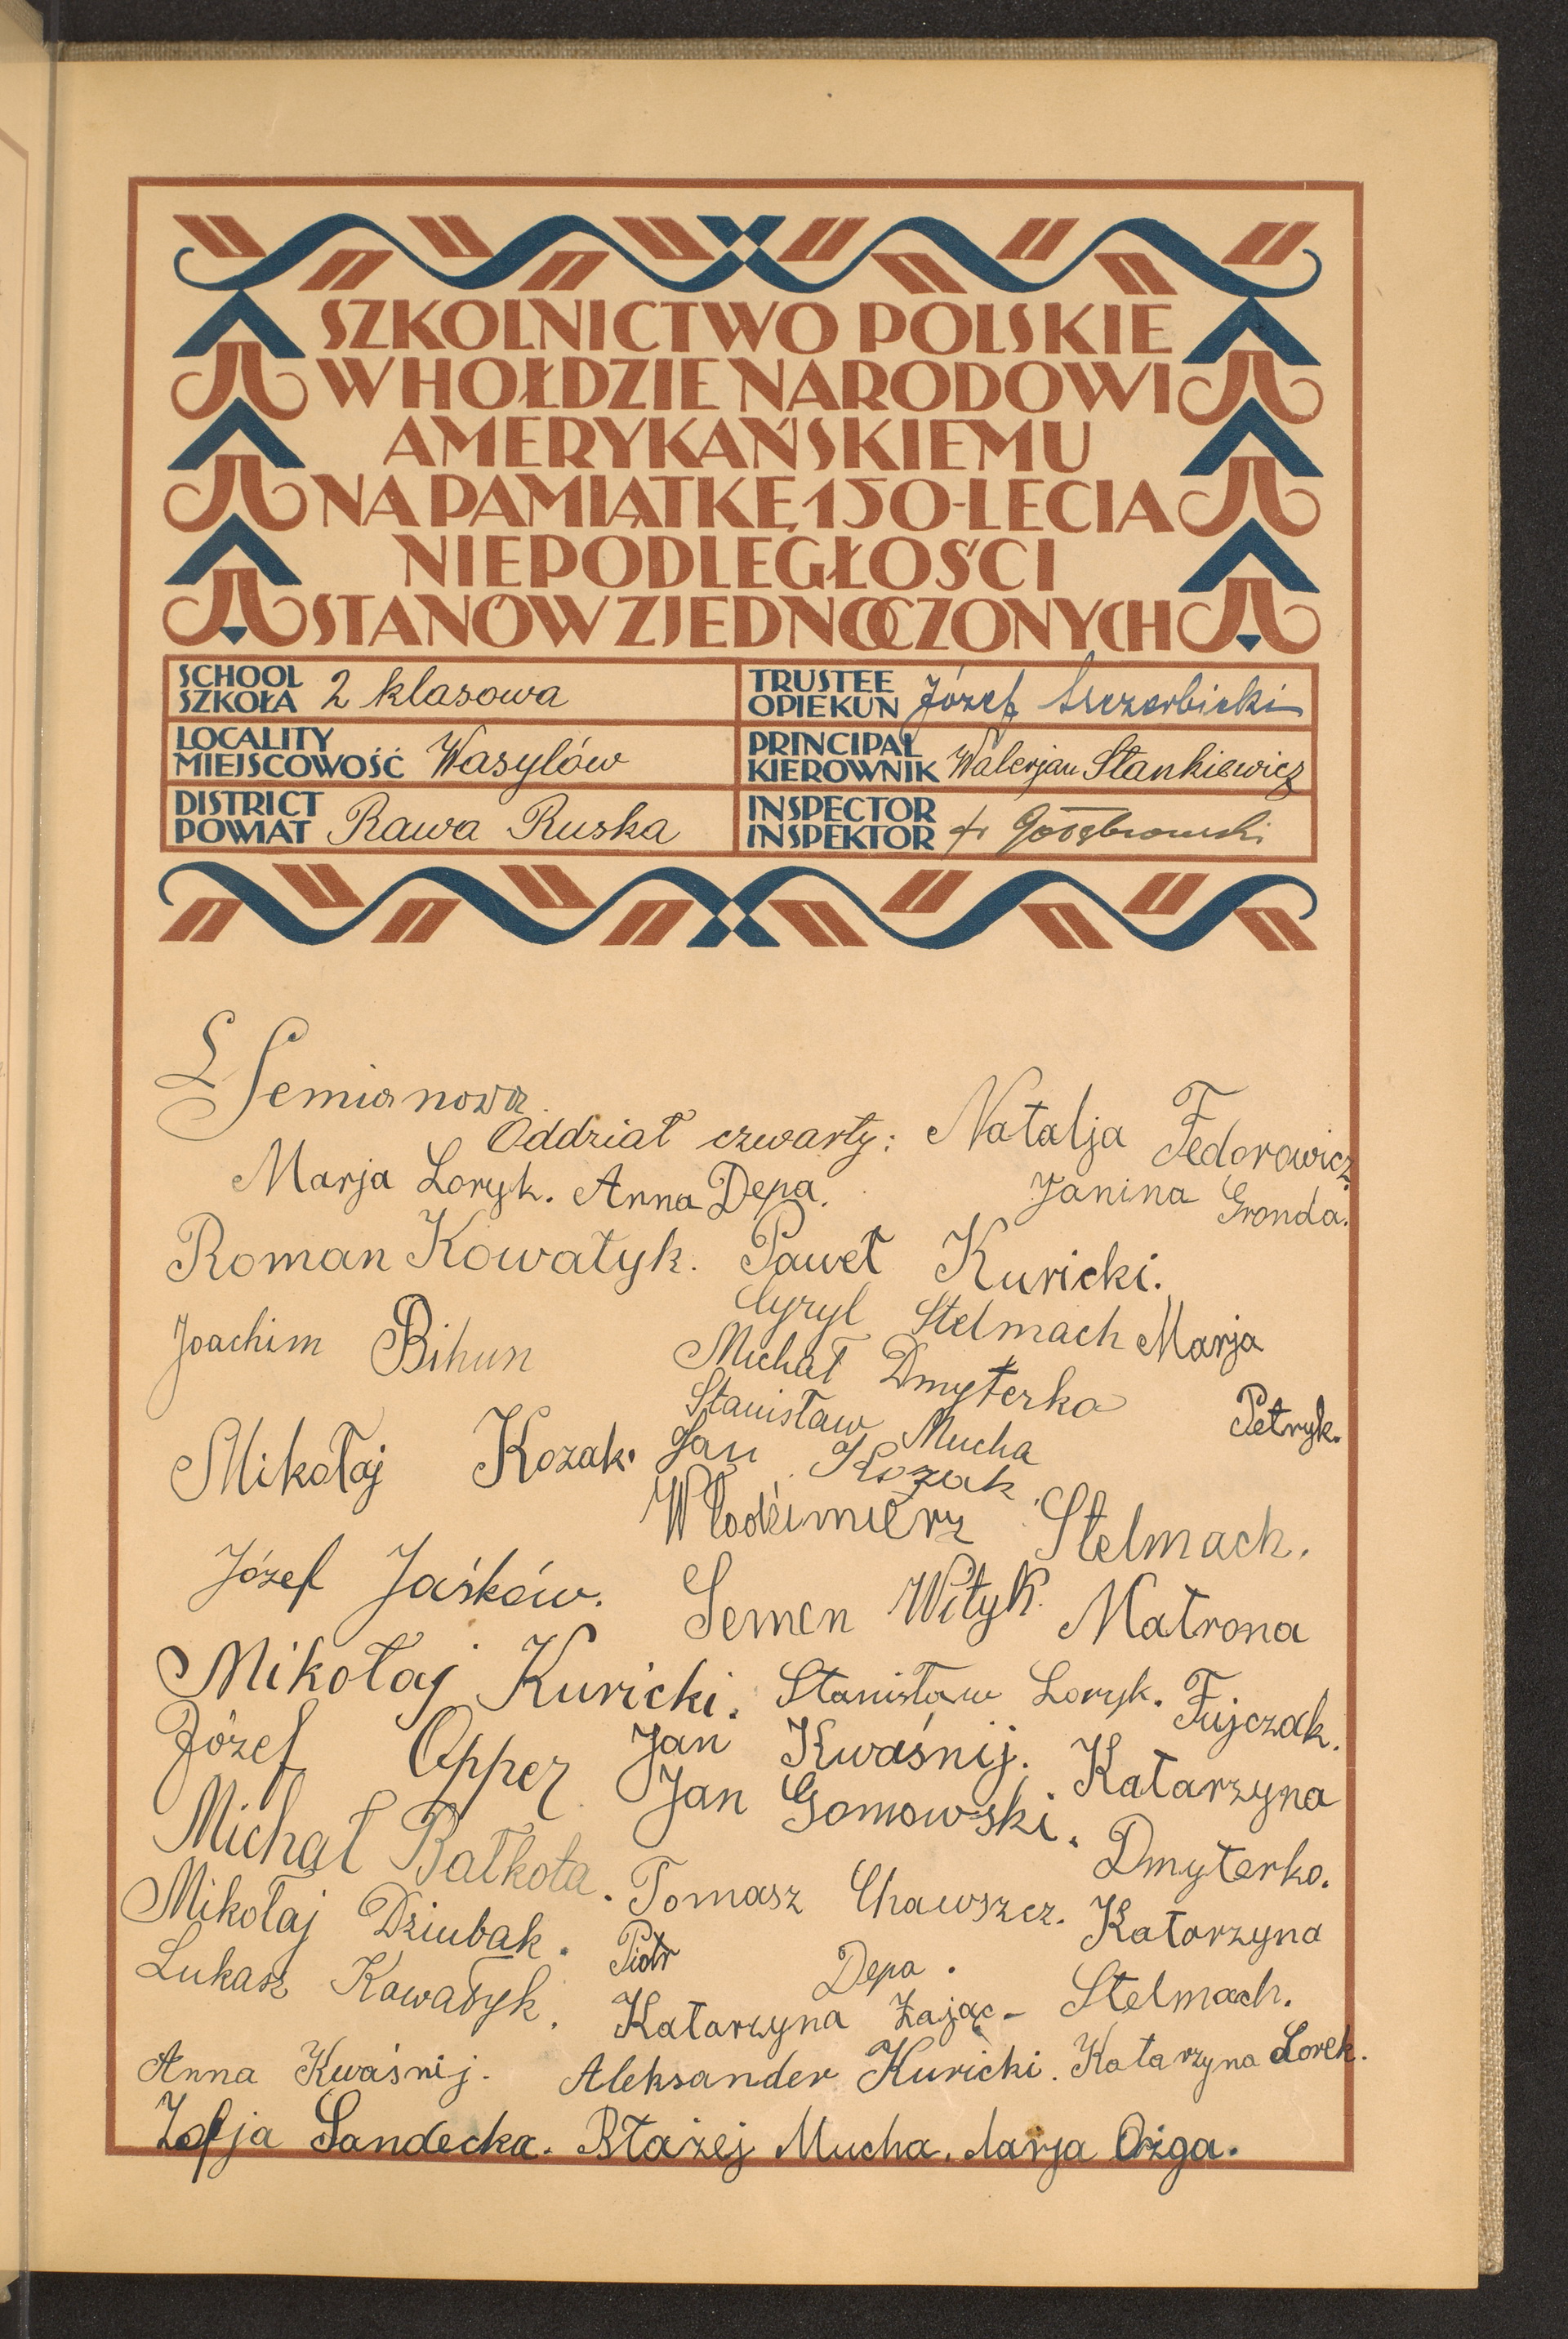 SZKOLNICTWO POLSKIE
W HOŁDZIE NARODOWI
AMERYKAŃSKIEMU
NA PAMIĄTKĘ 150-LECIA
NIEPODLEGŁOŚCI
STANÓW ZJEDNOCZONYCH
SCHOOL
SZKOŁA 2 klasowa
TRUSTEE
OPIEKUN Józef Szczerbicki
LOCALITY
MIEJSCOWOŚĆ Wasylów
PRINCIPAL
KIEROWNIK Walerjan Stankiewicz
DISTRICT
POWIAT Rawa Ruska
INSPECTOR
INSPEKTOR
L Semianowa
Oddział czwarty: Natalja Fedorowicz.
Marja Loryk. Anna Depa. Janina Gronda.
Roman Kowałyk. Paweł Kuricki.
Cyryl Stelmach Marja
Joachim Bihun Michał Dmyterko Petryk.
Stanisław Mucha
Mikołaj Kozak. Jan Kozak
Włodzimierz Stelmach.
Józef Jaśków. Semen Wityk. Matrona
Mikołaj Kuricki. Stanisław Loryk. Fujczak.
Józef Opper Jan Kwaśnij. Katarzyna
Jan Gomowski. Dmyterko.
Michał Bałkota. Tomasz Chawszcz. Katarzyna
Mikołaj Dziubak. Piotr Depa. Stelmach.
Lukasz Kowałyk. Katarzyna Zając-
Anna Kwaśnij. Aleksander Kuricki. Katarzyna Lorek.
Zofja Sandecka. Błażej Mucha. Marja Ożga.